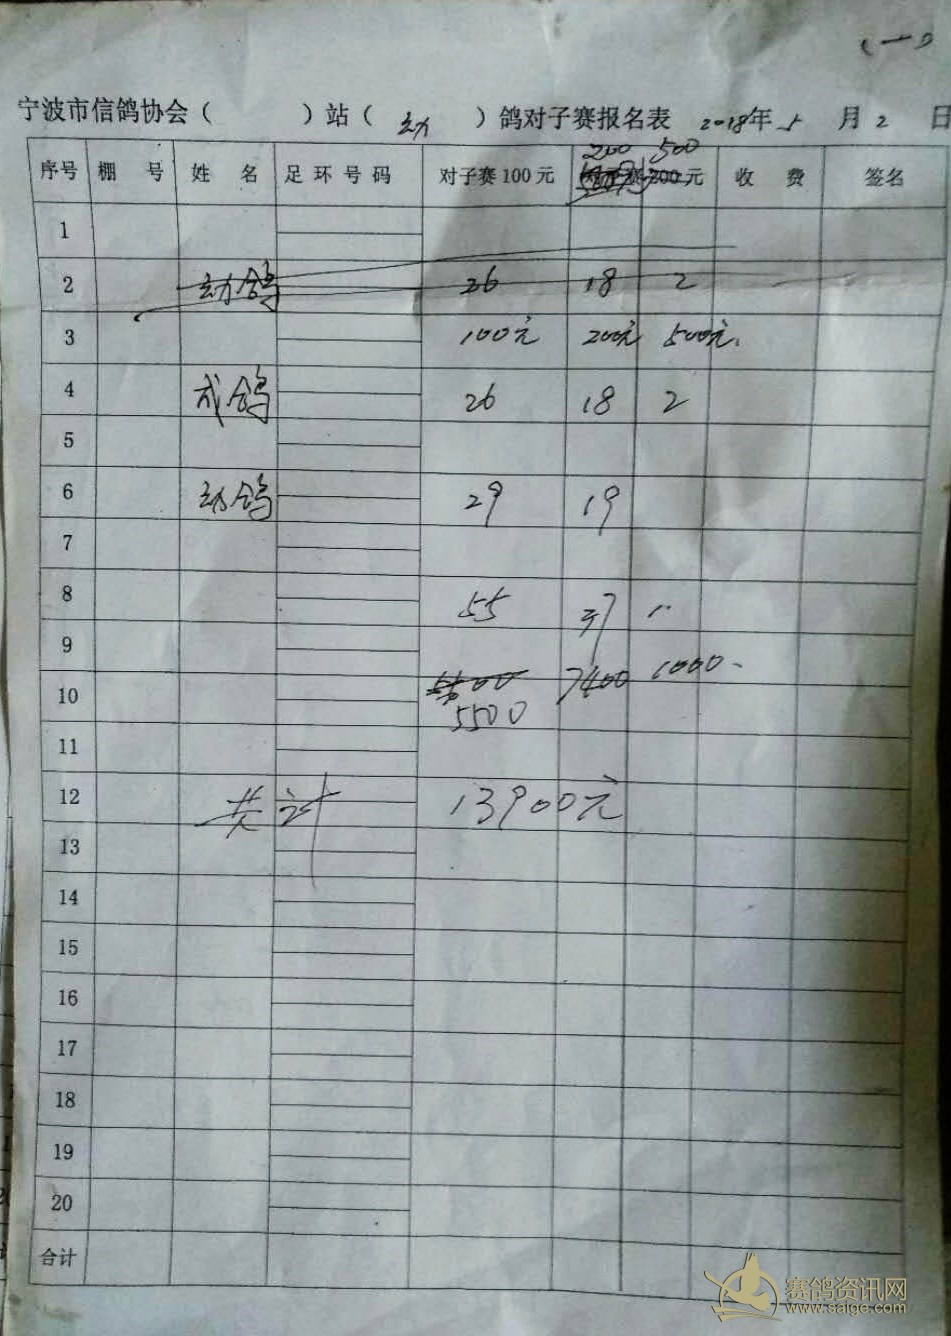 (一)
宁波市信鸽协会（ ）站（ 幼 ）鸽对子赛报名表 2018年 5 月 2 日
200 500
序号 棚 号 姓 名 足 环 号 码 对子赛 100 元 赛 200 元 收 费 签名
1
2 幼鸽 26 18 2
3 100元 200元 500元.
4 成鸽 26 18 2
5
6 幼鸽 29 19
7
8 55 37
9
10 7400 1000.
5500
11
12 共计 13900元
13
14
15
16
17
18
19
20
合计
赛鸽资讯网
www.saige.com